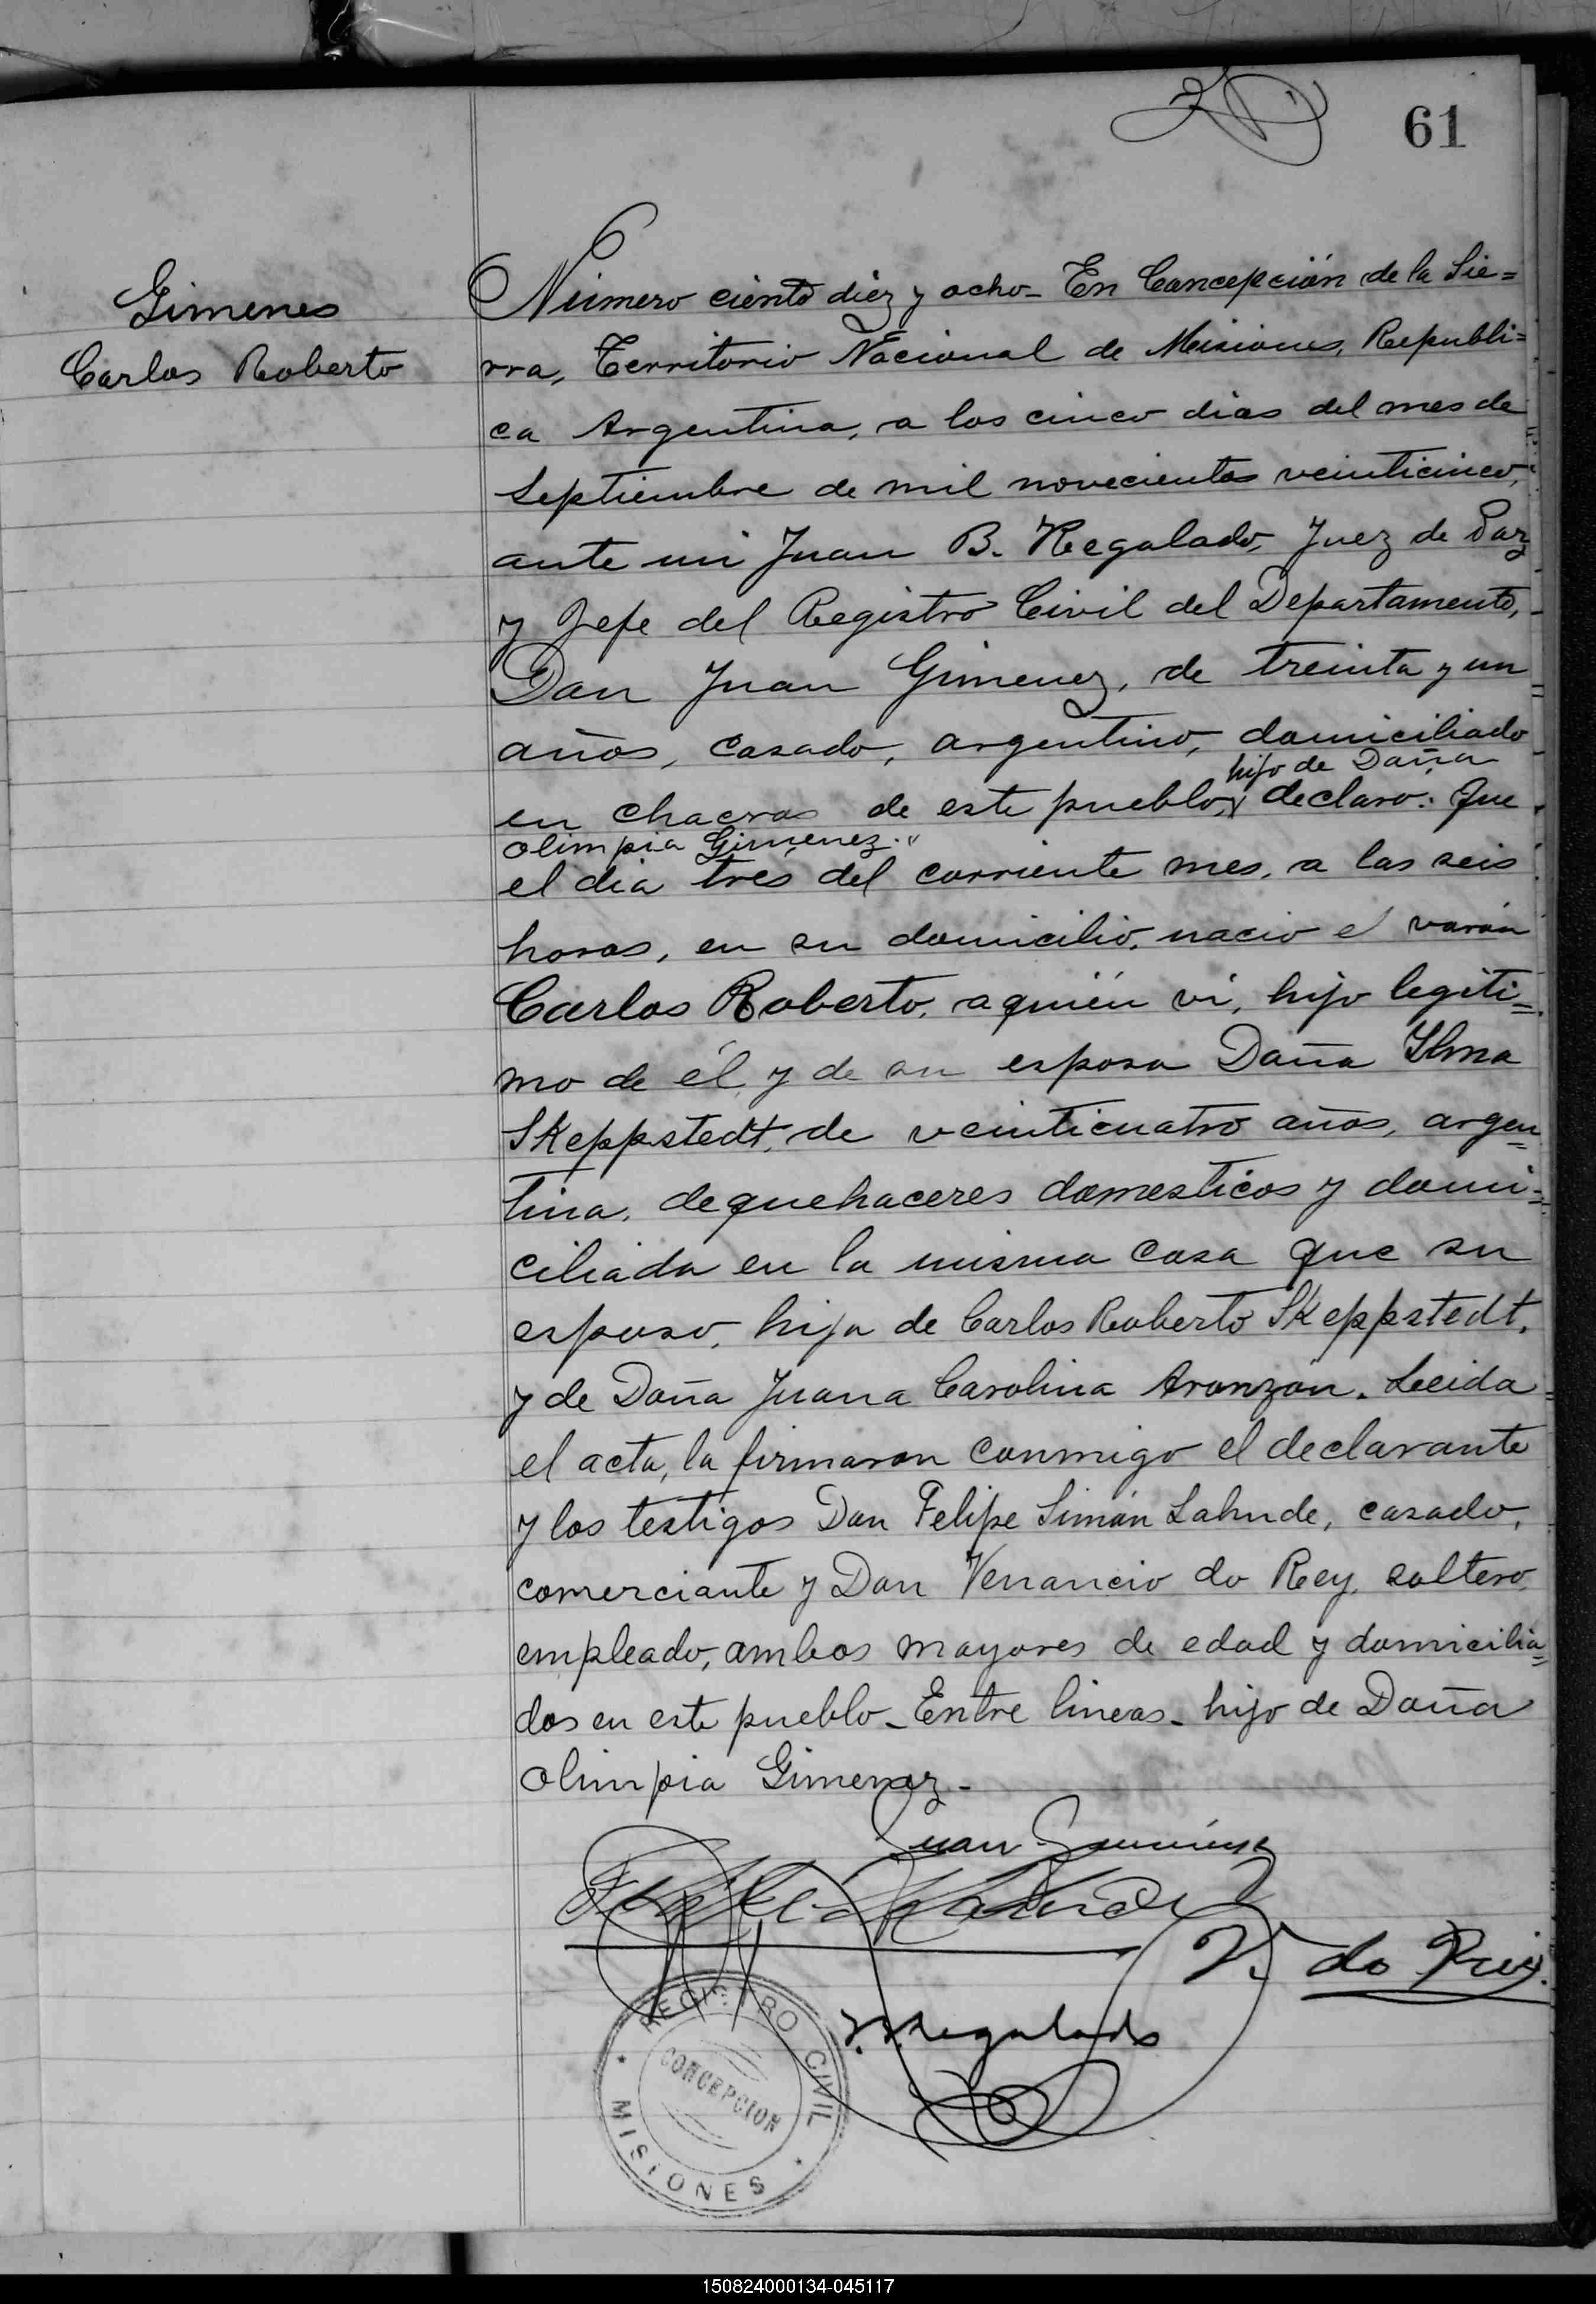 61
Gimenes
Carlos Roberto
Número ciento diez y ocho_ En Concepción de la Sie=
rra, Territorio Nacional de Misiones, Republi=
ca Argentina, a los cinco dias del mes de
Septiembre de mil novecientos veinticinco,
ante mi Juan B. Regalado, Juez de Paz
y Jefe del Registro Civil del Departamento,
Don Juan Gimenez, de treinta y un
años, casado, argentino, domiciliado
hijo de Doña
en chacras de este pueblo, declaro: Que
Olimpia Gimenez."
el dia tres del corriente mes, a las seis
horas, en su domicilio, nacio el varón
Carlos Roberto, a quién vi, hijo legiti=
mo de él y de su esposa Doña Ilma
Skeppstedt, de veinticuatro años, argen=
tina, de quehaceres domesticos y domi=
ciliada en la misma casa que su
esposo, hija de Carlos Roberto Skeppstedt,
y de Doña Juana Carolina Aronzon. Leida
el acta, la firmaron conmigo el declarante
y los testigos Don Felipe Simón Lahude, casado,
comerciante y Don Venancio do Rey, soltero,
empleado, ambos mayores de edad y domicilia=
dos en este pueblo_ Entre lineas_ hijo de Doña
Olimpia Gimenez_
Juan Gimenez
V. do Rey.
J. B. Regalado
REGISTRO CIVIL
CONCEPCION
MISIONES
150824000134-045117